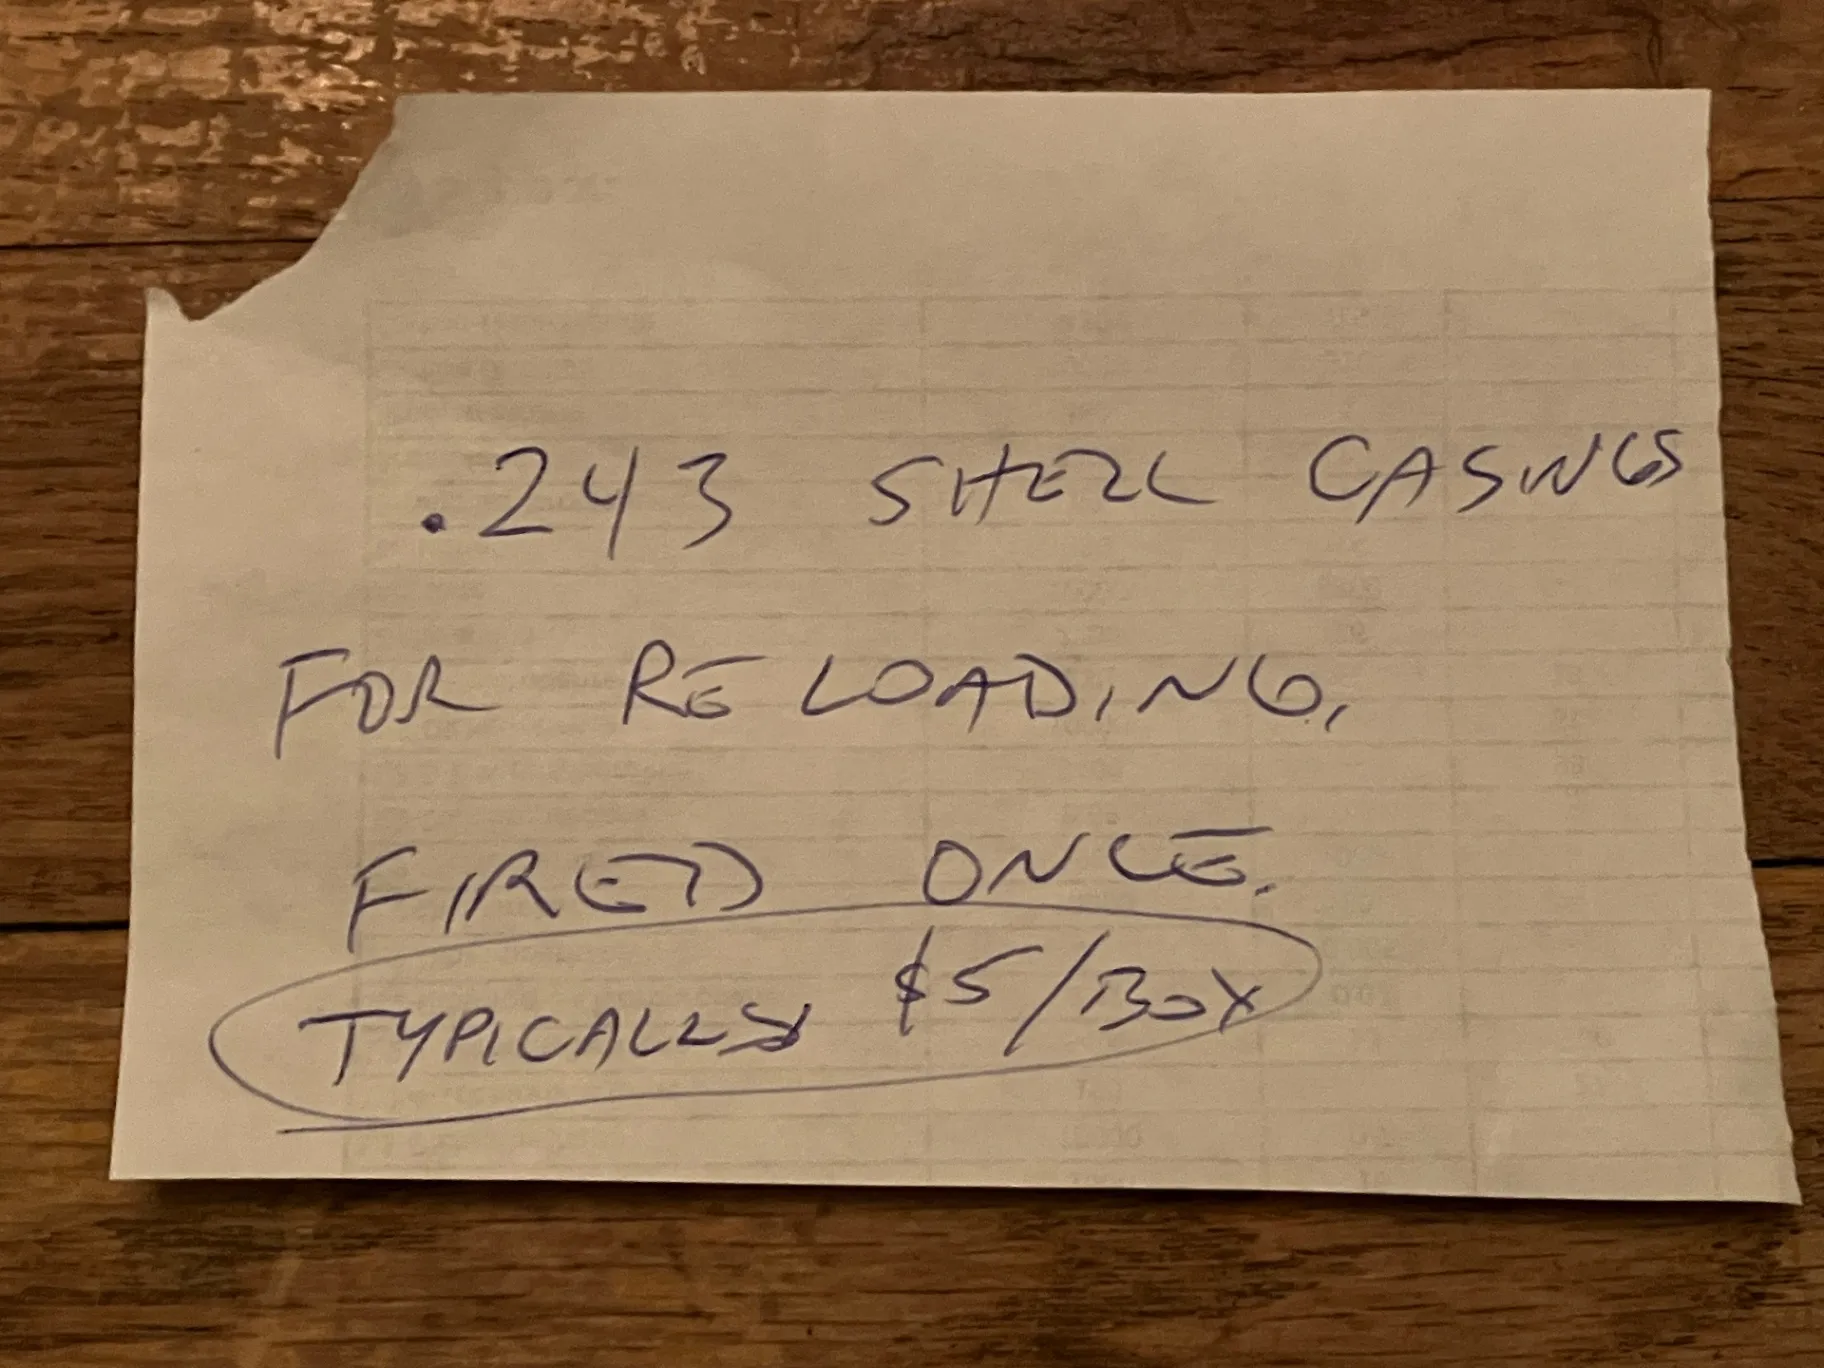 .243 SHELL CASINGS
FOR RELOADING.
FIRED ONCE.
TYPICALLY $5/BOX